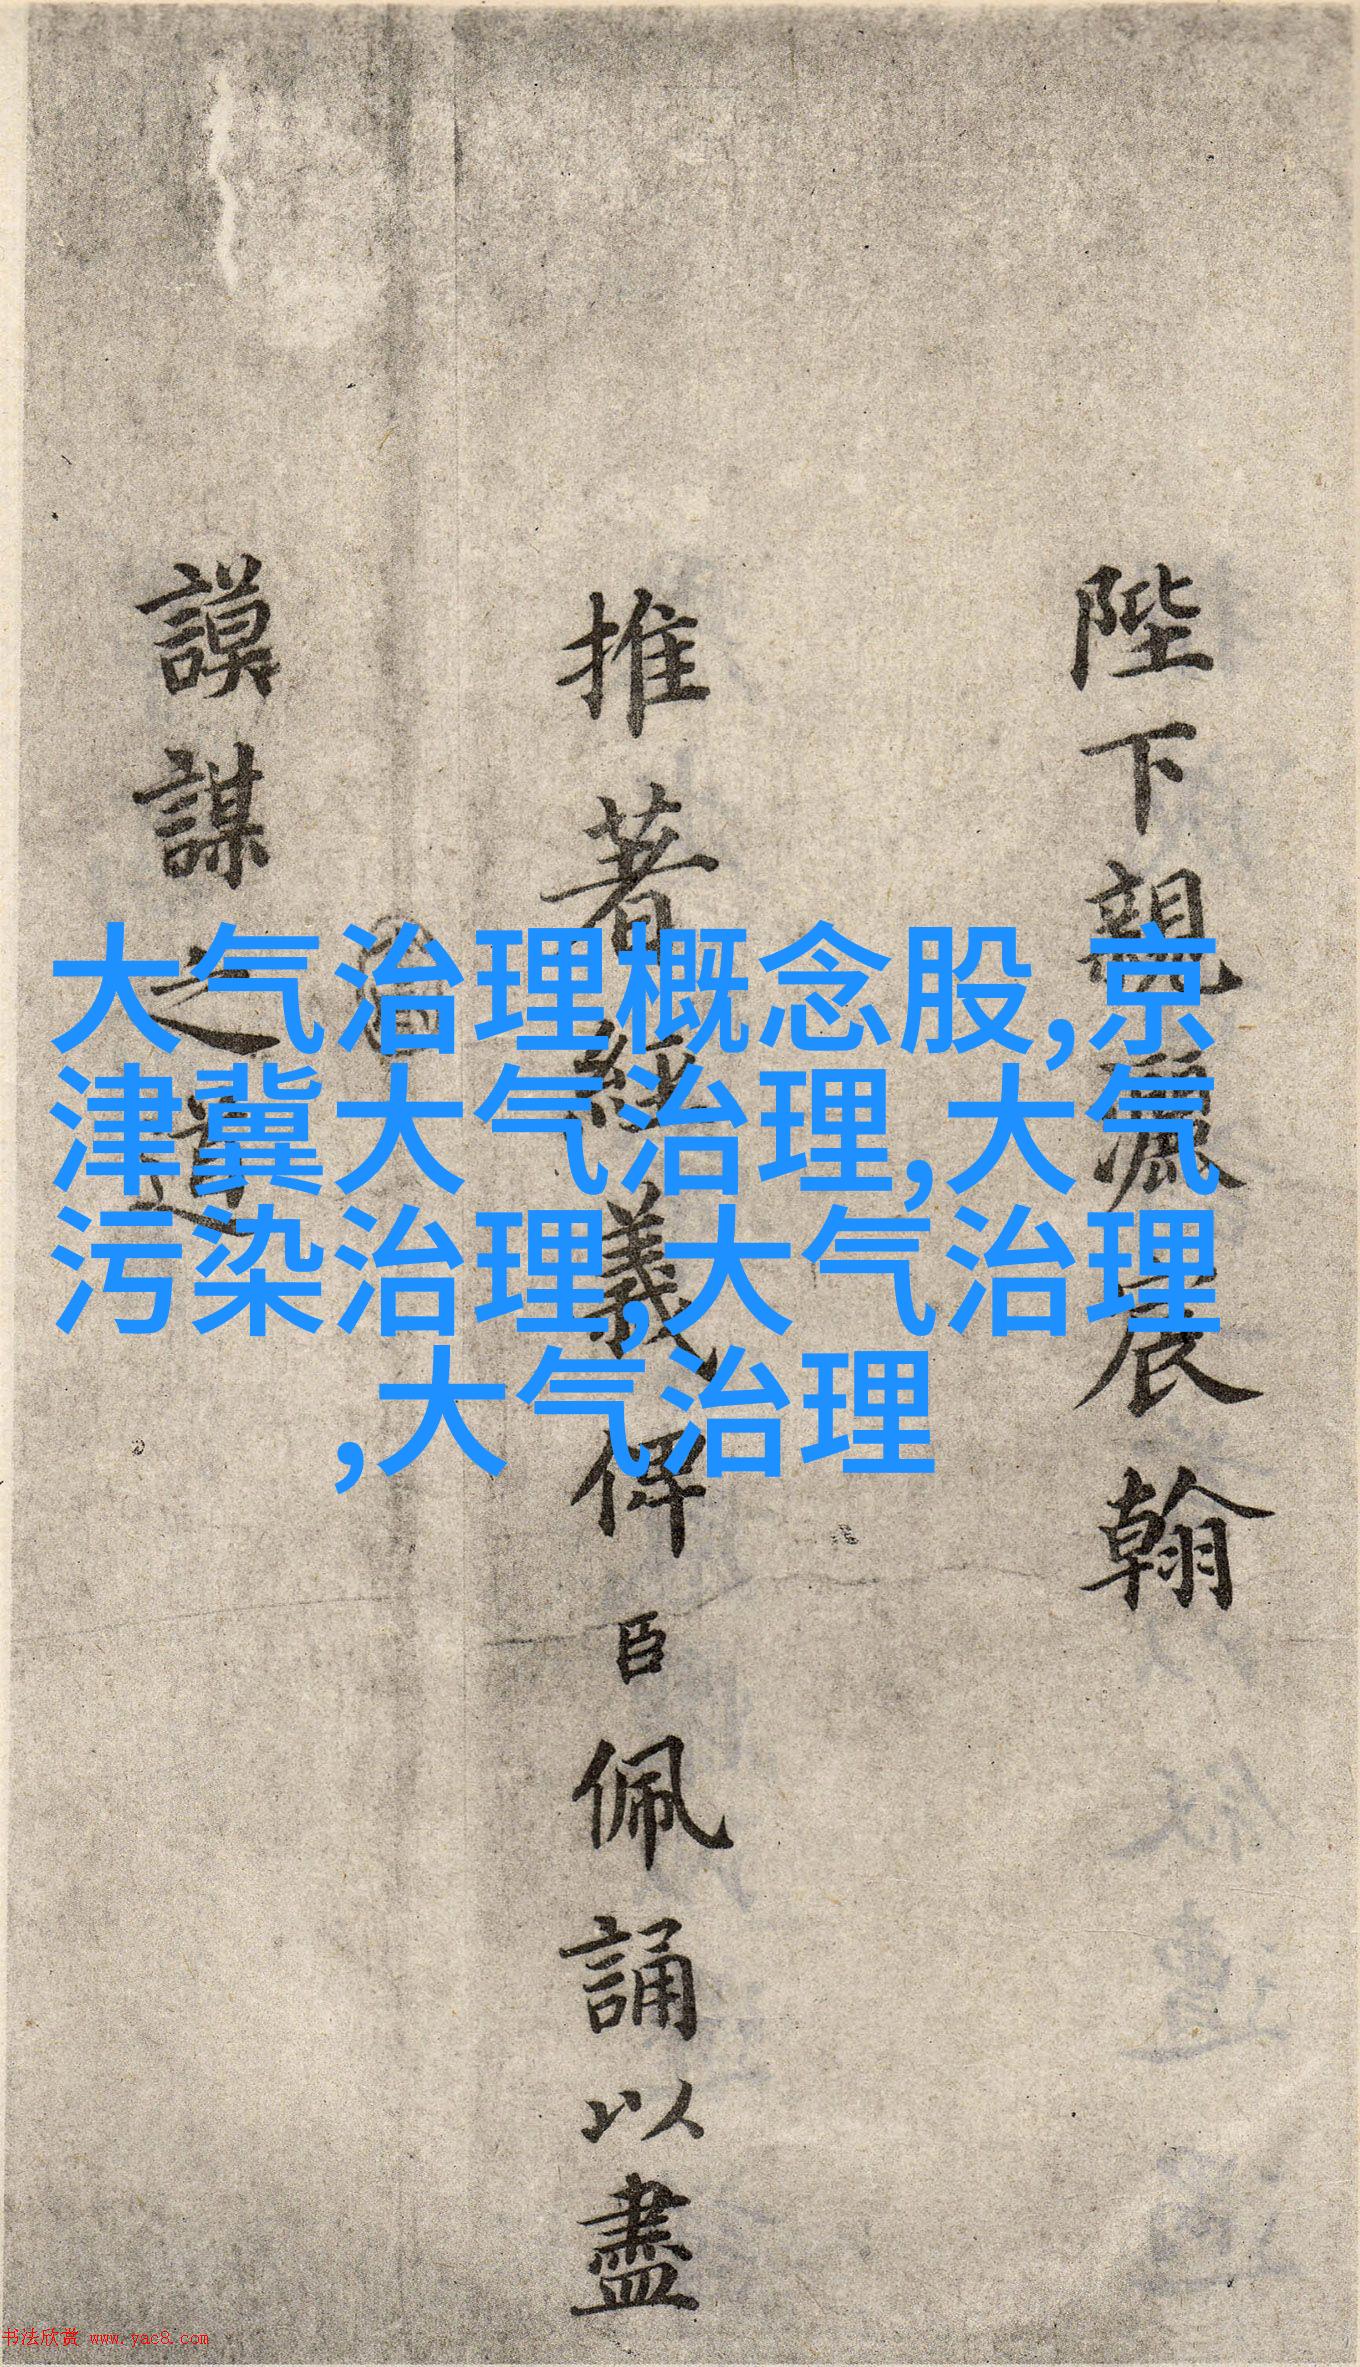 陛下親灑宸翰
推著經義俾臣佩誦以盡
謨謀之道
大气治理概念股,京
津冀大气治理,大气
污染治理,大气治理
,大气治理
书法欣赏 www.yac8.com